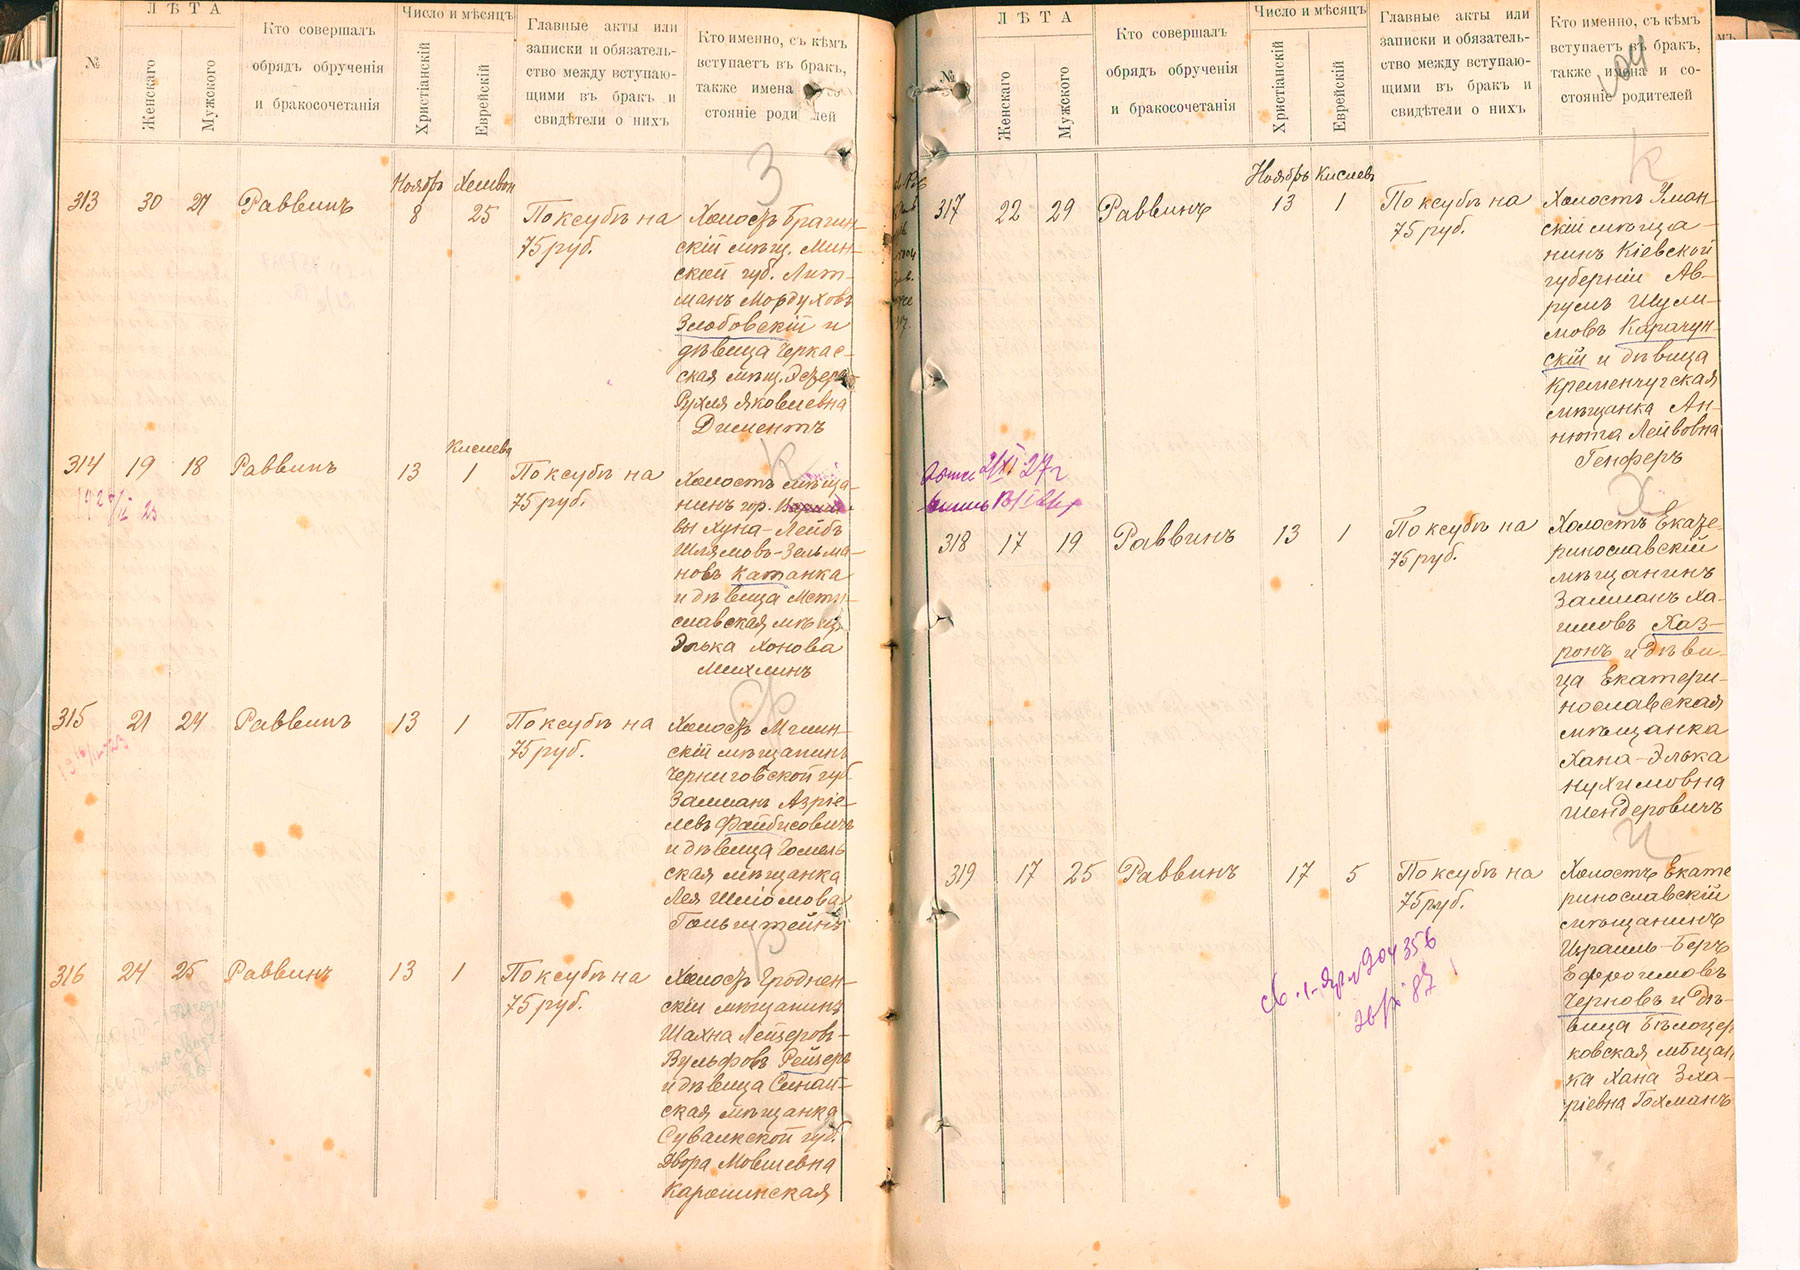 №
ЛѢТА
Женскаго
Мужского
Кто совершалъ
обрядъ обрученія
и бракосочетанія
Число и мѣсяцъ
Христіанскій
Еврейскій
Главные акты или
записки и обязатель-
ство между вступаю-
щими въ бракъ и
свидѣтели о нихъ
Кто именно, съ кѣмъ
вступаетъ въ бракъ,
также имена
стояніе родителей
З
Ноябрь Хешвон
313 30 27 Раввинъ 8 25 По ксубѣ на
75 руб.
Холостъ Брагин-
скій мѣщ. Мин-
ской губ. Лит-
манъ Мордуховъ
Злобовскій и
дѣвица Черкас-
ская мѣщ. Эсѳера
Рухля Яковлевна
Диментъ
Кислевъ
314 19 18 Раввинъ 13 1 По ксубѣ на
75 руб.
К
Холостъ мѣща-
нинъ гор.
вы Хуна-Лейбъ
Шлямовъ-Зельма-
новъ Катанка
и дѣвица Мсти-
славская мѣщ.
Элька Хонова
Михлинъ
315 21 24 Раввинъ 13 1 По ксубѣ на
75 руб.
Ф
Холостъ Мглин-
скій мѣщанинъ
Черниговской губ.
Залманъ Азріе-
левъ Файбисовичъ
и дѣвица Гомель
ская мѣщанка
Лея Шліомова
Гольштейнъ
316 24 25 Раввинъ 13 1 По ксубѣ на
75 руб.
Р
Холостъ Гроднен-
скій мѣщанинъ
Шахна Лейзеровъ-
Вульфовъ Рейзеръ
и дѣвица Синай-
ская мѣщанка
Сувалкской губ.
Двора Мовшевна
Карошинская
№
ЛѢТА
Женскаго
Мужского
Кто совершалъ
обрядъ обрученія
и бракосочетанія
Число и мѣсяцъ
Христіанскій
Еврейскій
Главные акты или
записки и обязатель-
ство между вступаю-
щими въ бракъ и
свидѣтели о нихъ
Кто именно, съ кѣмъ
вступаетъ въ бракъ,
также имена и со-
стояніе родителей
К
Ноябрь Кислевъ
317 22 29 Раввинъ 13 1 По ксубѣ на
75 руб.
Холостъ Уман-
скій мѣща-
нинъ Кіевской
губерніи Ав-
румъ Шули-
мовъ Карачун-
скій и дѣвица
Кременчугская
мѣщанка Ан-
нюта Лейбовна
Генферъ
318 17 19 Раввинъ 13 1 По ксубѣ на
75 руб.
Х
Холостъ Екате-
ринославскій
мѣщанинъ
Залманъ Ха-
имовъ Хаз-
ронъ и дѣви-
ца Екатери-
нославская
мѣщанка
Хана-Элька
Нухимовна
Шендеровичъ
319 17 25 Раввинъ 17 5 По ксубѣ на
75 руб.
Ч
Холостъ Екате
ринославскій
мѣщанинъ
Израиль-Беръ
Ефроимовъ
Черновъ и дѣ-
вица Бѣлоцер
ковская мѣщан
ка Хана Зха-
ріевна Гохманъ